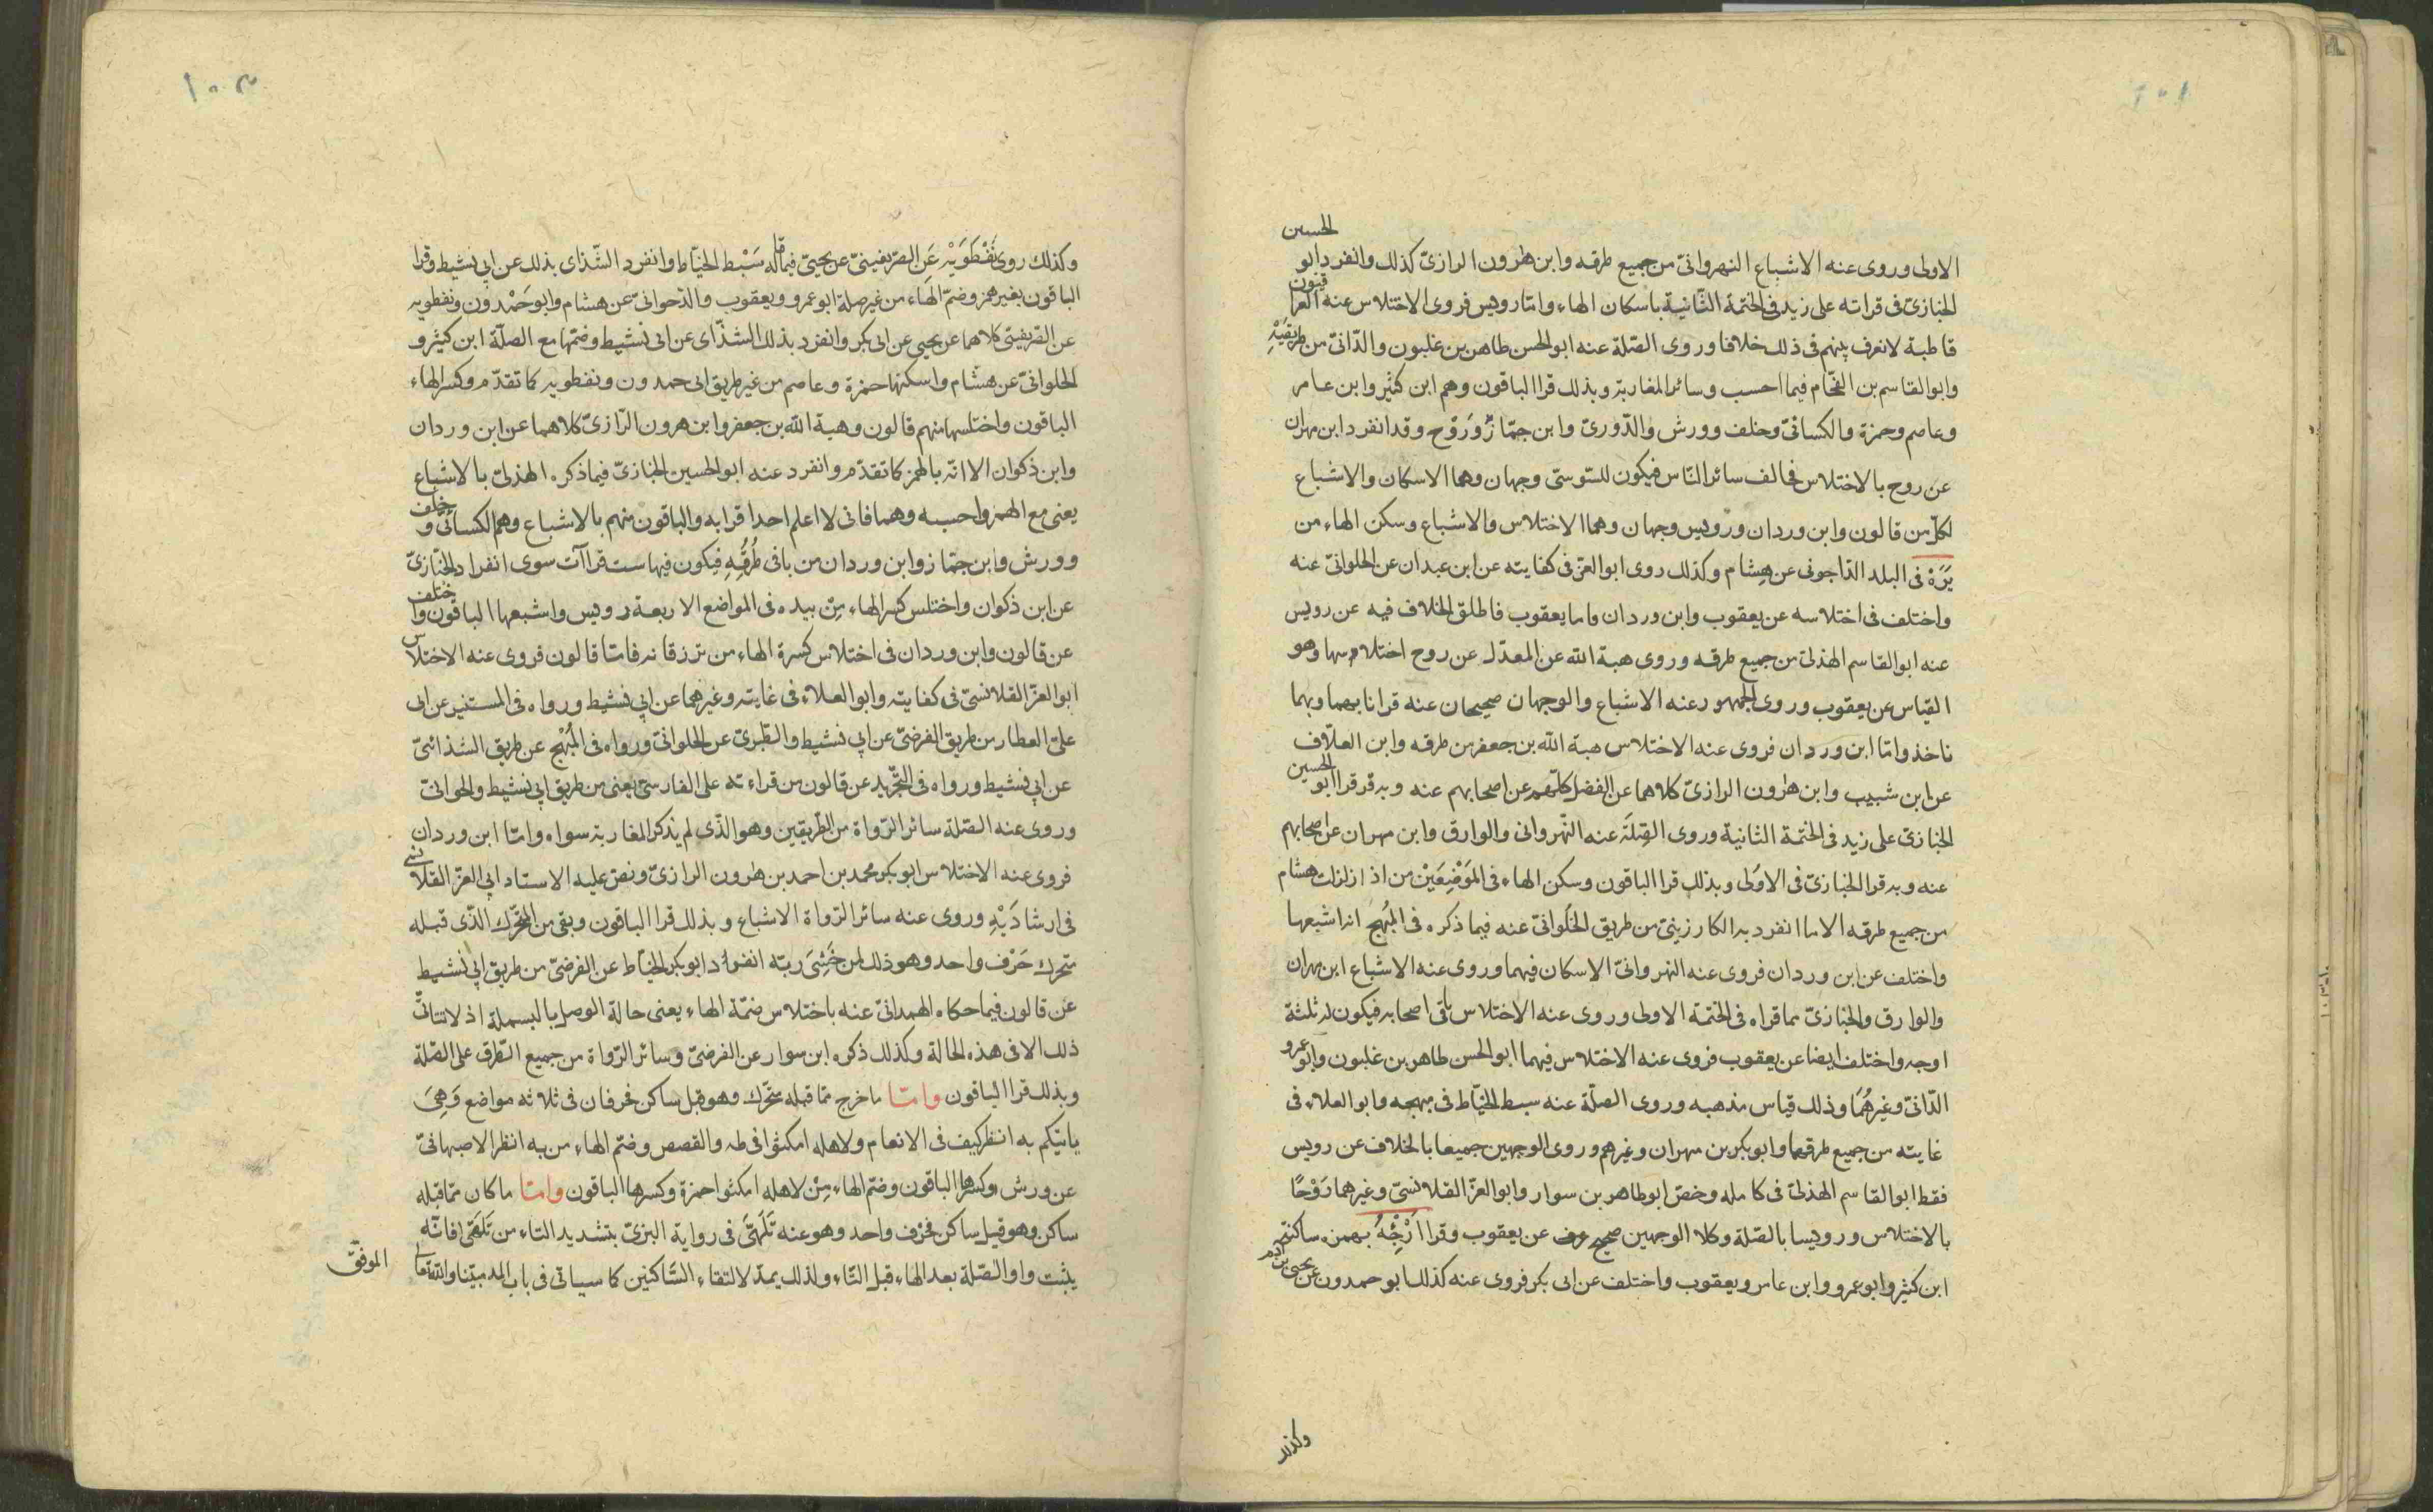 ١٠١
الاولى وروى عنه الاشباع النهروانىّ من جميع طرقه وابن هٰرون الرازىّ كذلك وانفرد ابو الحسين
الخبازىّ فى قراته على زيد فى الختمة الثّانية باسكان الهاء وامّا رويس فروى الاختلاس عنه العراقيّون
قاطبة لا نعرف بينهم فى ذلك خلافا وروى الصّلة عنه ابو الحسن طاهر بن غلبون والدّانىّ من طريقَيْهِ
وابو القاسم بن الفحّام فيما احسب وسائر المغاربة وبذلك قرا الباقون وهم ابن كثير وابن عامر
وعاصم وحمزة والكسائىّ وخلف وورش والدّورىّ وابن جمّاز ورَوْح وقد انفرد ابن مهران
عن روح بالاختلاس فخالف سائر النّاس فيكون للسّوسىّ وجهان وهما الاسكان والاشباع
لكلّ من قالون وابن وردان ورويس وجهان وهما الاختلاس والاشباع وسكن الهاء من
يَرَهْ فى البلد الدّاجونى عن هِشام وكذلك روى ابو العزّ فى كفايته عن ابن عبدان عن الحلوانىّ عنه
واختلف فى اختلاسه عن يعقوب وابن وردان فاما يعقوب فاطلق الخلاف فيه عن رويس
عنه ابو القاسم الهذلىّ من جميع طرقه وروى هبة الله عن المعدّل عن روح اختلاسها وهو
القياس عن يعقوب وروى الجمهور عنه الاشباع والوجهان صحيحان عنه قرانا بهما وبهما
ناخذ وامّا ابن وردان فروى عنه الاختلاس هبة الله بن جعفر من طرقه وابن العلّاف
عن ابن شبيب وابن هٰرون الرازىّ كلاهما عن الفضل كلّهم عن اصحابهم عنه وبه قرا ابو الحسين
الخبازى على زيد فى الختمة الثانية وروى الصِّلَة عنه النّهروانى والوارق وابن مهران عن اصحابهم
عنه وبه قرا الخبازىّ فى الاوُلى وبذلك قرا الباقون وسكن الهاء فى المَوْضِعَيْن من اذا زلزلت هشام
من جميع طرقه الا ما انفرد به الكارزينىّ من طريق الحُلوانىّ عنه فيما ذكره فى المُبهج انه اشبعها
واختلف عن ابن وردان فروى عنه النهروانىّ الاسكان فيهما وروى عنه الاشباع ابن مهران
والوارق والخبّازىّ مما قراه فى الختمة الاولى وروى عنه الاختلاس باقى اصحابه فيكون له ثلثة
اوجه واختلف ايضا عن يعقوب فروى عنه الاختلاس فيهما ابو الحسن طاهر بن غلبون وابو عمرو
الدّانىّ وغيرهُمَا وذلك قياس مذهبه وروى الصلّة عنه سبط الخيّاط فى مبهجه وابو العلاء فى
غايته من جميع طرقهما وابو بكر بن مهران وغيرهم وروى الوجهين جميعا بالخلاف عن رويس
فقط ابو القاسم الهذلىّ فى كامله وخصّ ابو طاهر بن سوار وابو العزّ القلانسىّ وغيرهما رَوْحًا
بالاختلاس ورويسا بالصّلة وكلا الوجهين صحيح عن يعقوب وقرا اَرْجِئْهُ بهمزه ساكنة
ابن كثير وابو عمرو وابن عامر ويعقوب واختلف عن ابى بكر فروى عنه كذلك ابو حمدون عن يحيى بن ادم
وكذلك
وكذلك روى نَفْطَوَيْهِ عَن الصّريفينىّ عن يحيىّ فيما قاله سَبْط الخيّاط وانفرد الشّذاى بذلك عن ابى نشيط وقرا
الباقون بغير همز وضمّ الهاء من غير صلة ابو عمرو ويعقوب والدّاجوانىّ عن هشام وابو حَمْدون ونفطويه
عن الصّريفينىّ كلاهما عن يحيى عن ابى بكر وانفرد بذلك الشذّاى عن ابى نشيط وضمّها مع الصلّة ابن كثير و
الحلوانىّ عن هشام واسكنها حمزة وعاصم من غير طريق ابى حمدون ونفطويه كما تقدّم وكسر الهاء
الباقون واختلسها منهم قالون وهبة الله بن جعفر وابن هرون الرّازىّ كلاهما عن ابن وردان
وابن ذكوان الا انّه بالهمز كما تقدّم وانفرد عنه ابو الحسين الخبازىّ فيما ذكره الهذلىّ بالاشباع
يعنى مع الهمز واحسبه وهما فانى لا اعلم احدا قرا به والباقون منهم بالاشباع وهم الكسائىّ وخلف
وورش وابن جمّاز وابن وردان من باقى طُرُقِهِ فيكون فيها ست قراآت سوى انفراد الخبّازىّ
عن ابن ذكوان واختلس كسر الهاء مِنْ بيده فى المواضع الاربعة رويس واشبعها الباقون واختلف
عن قالون وابن وردان فى اختلاس كسرة الهاء من ترزقانه فامّا قالون فروى عنه الاختلاس
ابو العزّ القلانسىّ فى كفايته وابو العلاء فى غايته وغيرهما عن ابى نشيط ورواه فى المستنير عن ابى
علىّ العطار من طريق الفرضىّ عن ابى نشيط والطّبرىّ عن الحلوانىّ ورواه فى المُبْهج عن طريق الشذائىّ
عن ابى نشيط ورواه فى التّجريد عن قالون من قراءته على الفارسىّ يعنى من طريق ابى نشيط والحلوانىّ
وروى عنه الصّلة سائر الرّواة من الطّريقين وهو الذّى لم يذكر المغاربة سواه وامّا ابن وردان
فروى عنه الاختلاس ابو بكر محمد بن احمد بن هٰرون الرازىّ ونصّ عليه الاستاد ابى العزّ القلانسى
فى ارشادَيْهِ وروى عنه سائر الرّواة الاشباع وبذلك قرا الباقون وبقى من المتحّرك الذّى قبله
متحرك حَرْف واحد وهو ذلك لمن خَشِىَ ربّه انفرد ابو بكر الخيّاط عن الفرضىّ من طريق ابى نشيط
عن قالون فيما حكاه الهمدانىّ عنه باختلاس ضمّة الهاء يعنى حالة الوصل بالبسملة اذ لا تتاتّى
ذلك الا فى هذه الحالة وكذلك ذكره ابن سوار عن الفرضىّ وسائر الرّواة من جميع الطّرق على الصّلة
وبذلك قرا الباقون وامّا ما خرج مّما قبله متحّرك وهو قبل ساكن فحرفان فى ثلاثه مواضع وَهِىَ
ياتيكم به انظر كيف فى الانعام ولاهله امكثوا فى طه والقصص وضمّ الهاء من به انظر الاصبهانىّ
عن ورش وكسرها الباقون وضمّ الهاء مِنْ لاهله امكثوا حمزة وكسرها الباقون وامّا ما كان مّما قبله
ساكن وهو قبل ساكن فحَرْف واحد وهو عنه تَلَهّىَ فى رواية البزىّ بتشديد التاء من تَلَهّىَ فانّه
يثبت واو الصّلة بعد الهاء قبل التّاء ولذلك يمدّ لالتقاء السّاكنين كما سياتى فى باب المد مبيّنا والله تعالى الموفّق